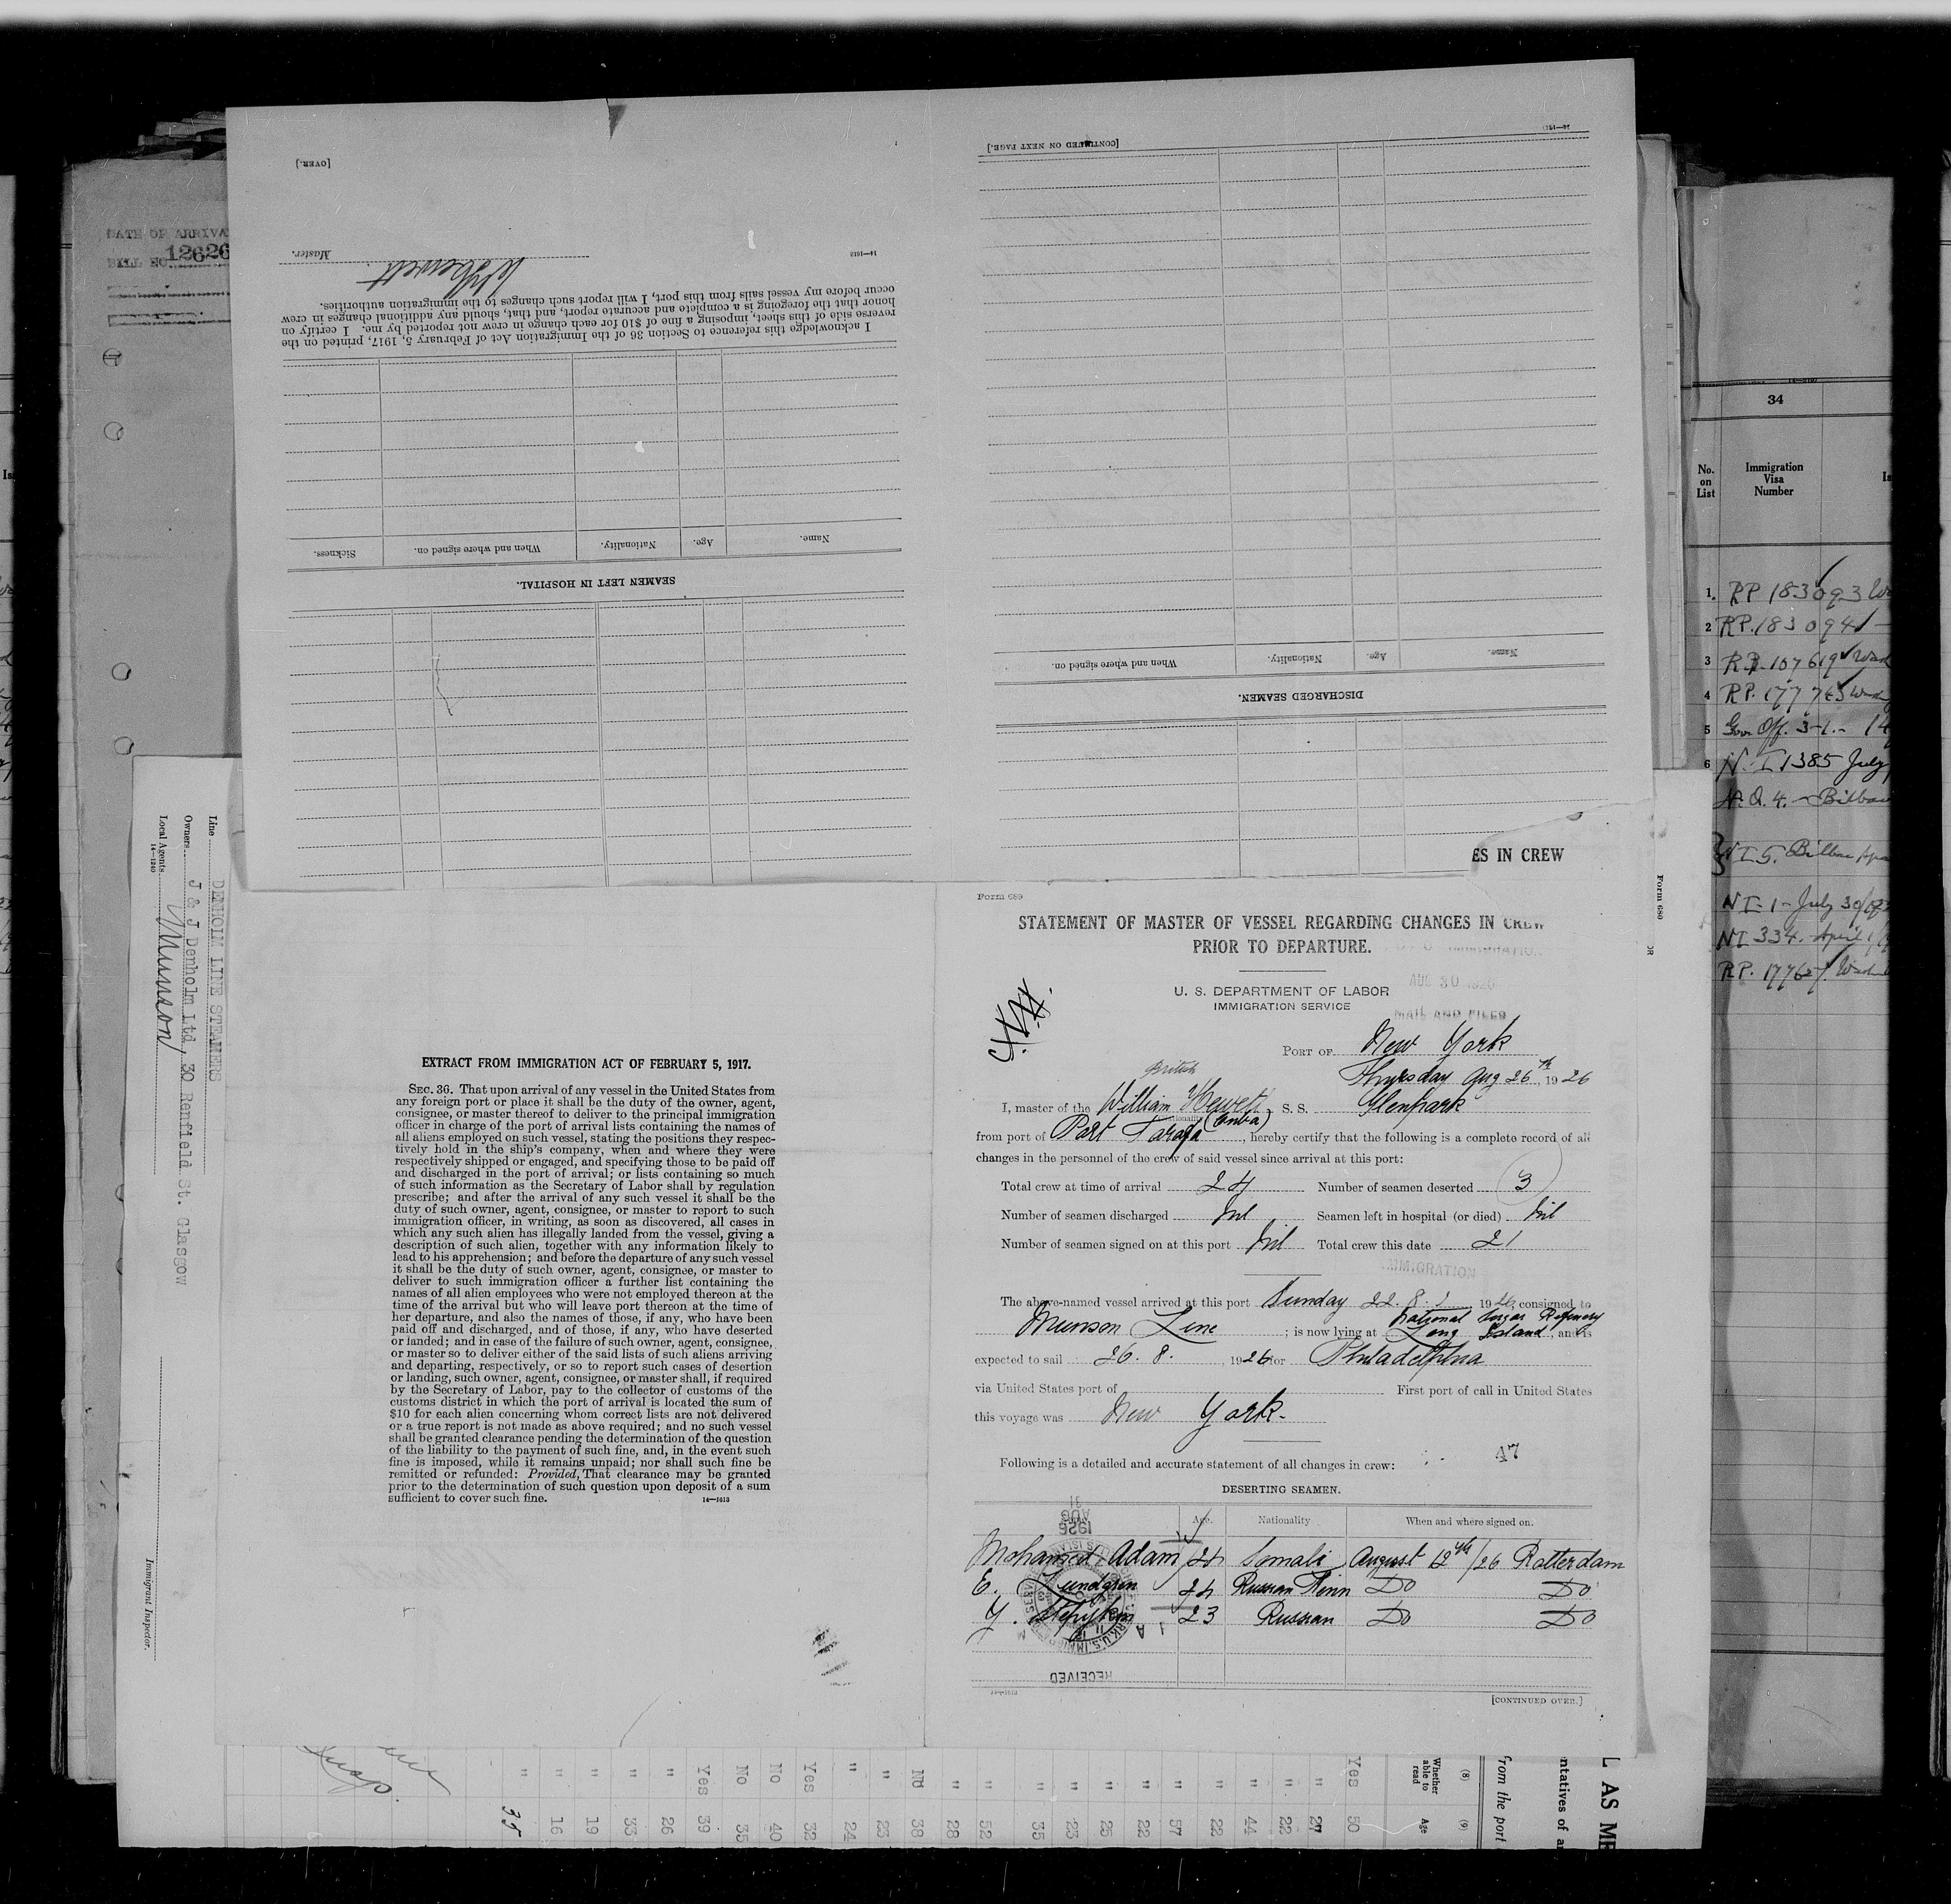 [OVER.]
14—1613
Master.
I acknowledge this reference to Section 36 of the Immigration Act of February 5, 1917, printed on the
reverse side of this sheet, imposing a fine of $10 for each change in crew not reported by me. I certify on
honor that the foregoing is a complete and accurate report, and that, should any additional changes in crew
occur before my vessel sails from this port, I will report such changes to the immigration authorities.
Name. Age. Nationality. When and where signed on. Sickness.
SEAMEN LEFT IN HOSPITAL.
[CONTINUED ON NEXT PAGE.]
Name. Age. Nationality. When and where signed on.
DISCHARGED SEAMEN.
DATE OF ARRIVA
BILL NO. 12626
34
No. on List
Immigration Visa Number
1. RP 183093
2 RP. 183094
3 RP 107619
4 RP. 177
5 Gov. Off. 3-1. - 14
6 N. I 1385 July
N.Q. 4. - Bilbao
NI 5. Bilbao
NI-1- July 30
NI 334. April
RP. 17762
ES IN CREW
Form 680
Line DENHOLM LINE STEAMERS
Owners. J & J Denholm Ltd, 30 Renfield St. Glasgow
Local Agents Munson
14—1240
Immigrant Inspector.
EXTRACT FROM IMMIGRATION ACT OF FEBRUARY 5, 1917.
SEC. 36. That upon arrival of any vessel in the United States from
any foreign port or place it shall be the duty of the owner, agent,
consignee, or master thereof to deliver to the principal immigration
officer in charge of the port of arrival lists containing the names of
all aliens employed on such vessel, stating the positions they respec-
tively hold in the ship's company, when and where they were
respectively shipped or engaged, and specifying those to be paid off
and discharged in the port of arrival; or lists containing so much
of such information as the Secretary of Labor shall by regulation
prescribe; and after the arrival of any such vessel it shall be the
duty of such owner, agent, consignee, or master to report to such
immigration officer, in writing, as soon as discovered, all cases in
which any such alien has illegally landed from the vessel, giving a
description of such alien, together with any information likely to
lead to his apprehension; and before the departure of any such vessel
it shall be the duty of such owner, agent, consignee, or master to
deliver to such immigration officer a further list containing the
names of all alien employees who were not employed thereon at the
time of the arrival but who will leave port thereon at the time of
her departure, and also the names of those, if any, who have been
paid off and discharged, and of those, if any, who have deserted
or landed; and in case of the failure of such owner, agent, consignee,
or master so to deliver either of the said lists of such aliens arriving
and departing, respectively, or so to report such cases of desertion
or landing, such owner, agent, consignee, or master shall, if required
by the Secretary of Labor, pay to the collector of customs of the
customs district in which the port of arrival is located the sum of
$10 for each alien concerning whom correct lists are not delivered
or a true report is not made as above required; and no such vessel
shall be granted clearance pending the determination of the question
of the liability to the payment of such fine, and, in the event such
fine is imposed, while it remains unpaid; nor shall such fine be
remitted or refunded: Provided, That clearance may be granted
prior to the determination of such question upon deposit of a sum
sufficient to cover such fine.
14—1613
Form 689
STATEMENT OF MASTER OF VESSEL REGARDING CHANGES IN CREW
PRIOR TO DEPARTURE.
U. S. DEPARTMENT OF LABOR
IMMIGRATION SERVICE
AUG 30 1926
MAIL AND FILES
PORT OF New York
Thursday Aug 26th, 1926
British
I, master of the William Hewett, S. S. Glenpark
from port of Port Tarafa (Cuba), hereby certify that the following is a complete record of all
changes in the personnel of the crew of said vessel since arrival at this port:
Total crew at time of arrival 24 Number of seamen deserted 3
Number of seamen discharged Nil Seamen left in hospital (or died) Nil
Number of seamen signed on at this port Nil Total crew this date 21
IMMIGRATION
The above-named vessel arrived at this port Sunday 22. 8. 1926, consigned to
Munson Line; is now lying at National Sugar Refinery Long Island, and is
expected to sail 26. 8. 1926 for Philadelphia
via United States port of First port of call in United States
this voyage was New York.
47
Following is a detailed and accurate statement of all changes in crew:
DESERTING SEAMEN.
Age. Nationality When and where signed on.
Mohamed Adam 24 Somali August 12th/26 Rotterdam
E. Lundgren 24 Russian Finn Do Do
23 Russian Do Do
1926 AUG 31
RECEIVED
[CONTINUED OVER.]
Yes " " " " " " " " " " " No " " Yes No No Yes " " " " "
50 27 22 44 22 57 22 25 23 35 52 28 38 23 24 32 40 35 39 26 33 19 16 35
(8) Whether able to read
(9) Age
from the port
ntatives of a
L AS ME